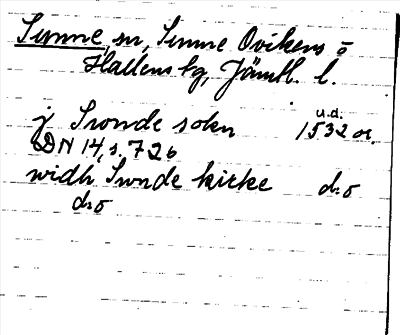 Sunne, sn, Sunne Ovikens o
Hallens tg, Jämtl. l.
j Swnde sokn u.d. 1532 or.
DN 14, s. 726
widh Swnde kirke d:o
d:o